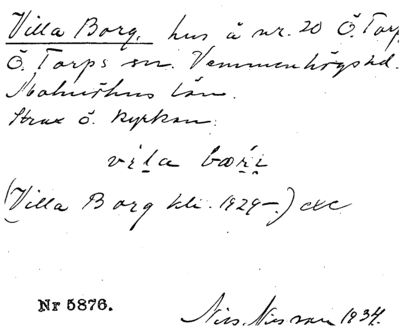 Villa Borg. hus å nr. 20 Ö. Torp,
Ö. Torps sn. Vemmenhögs hd.
Malmöhus län.
Strax ö. kyrkan.
vila bœri
(Villa Borg kli. 1929–.) etc
Nr 5876.
Nils Nilsson 1934.